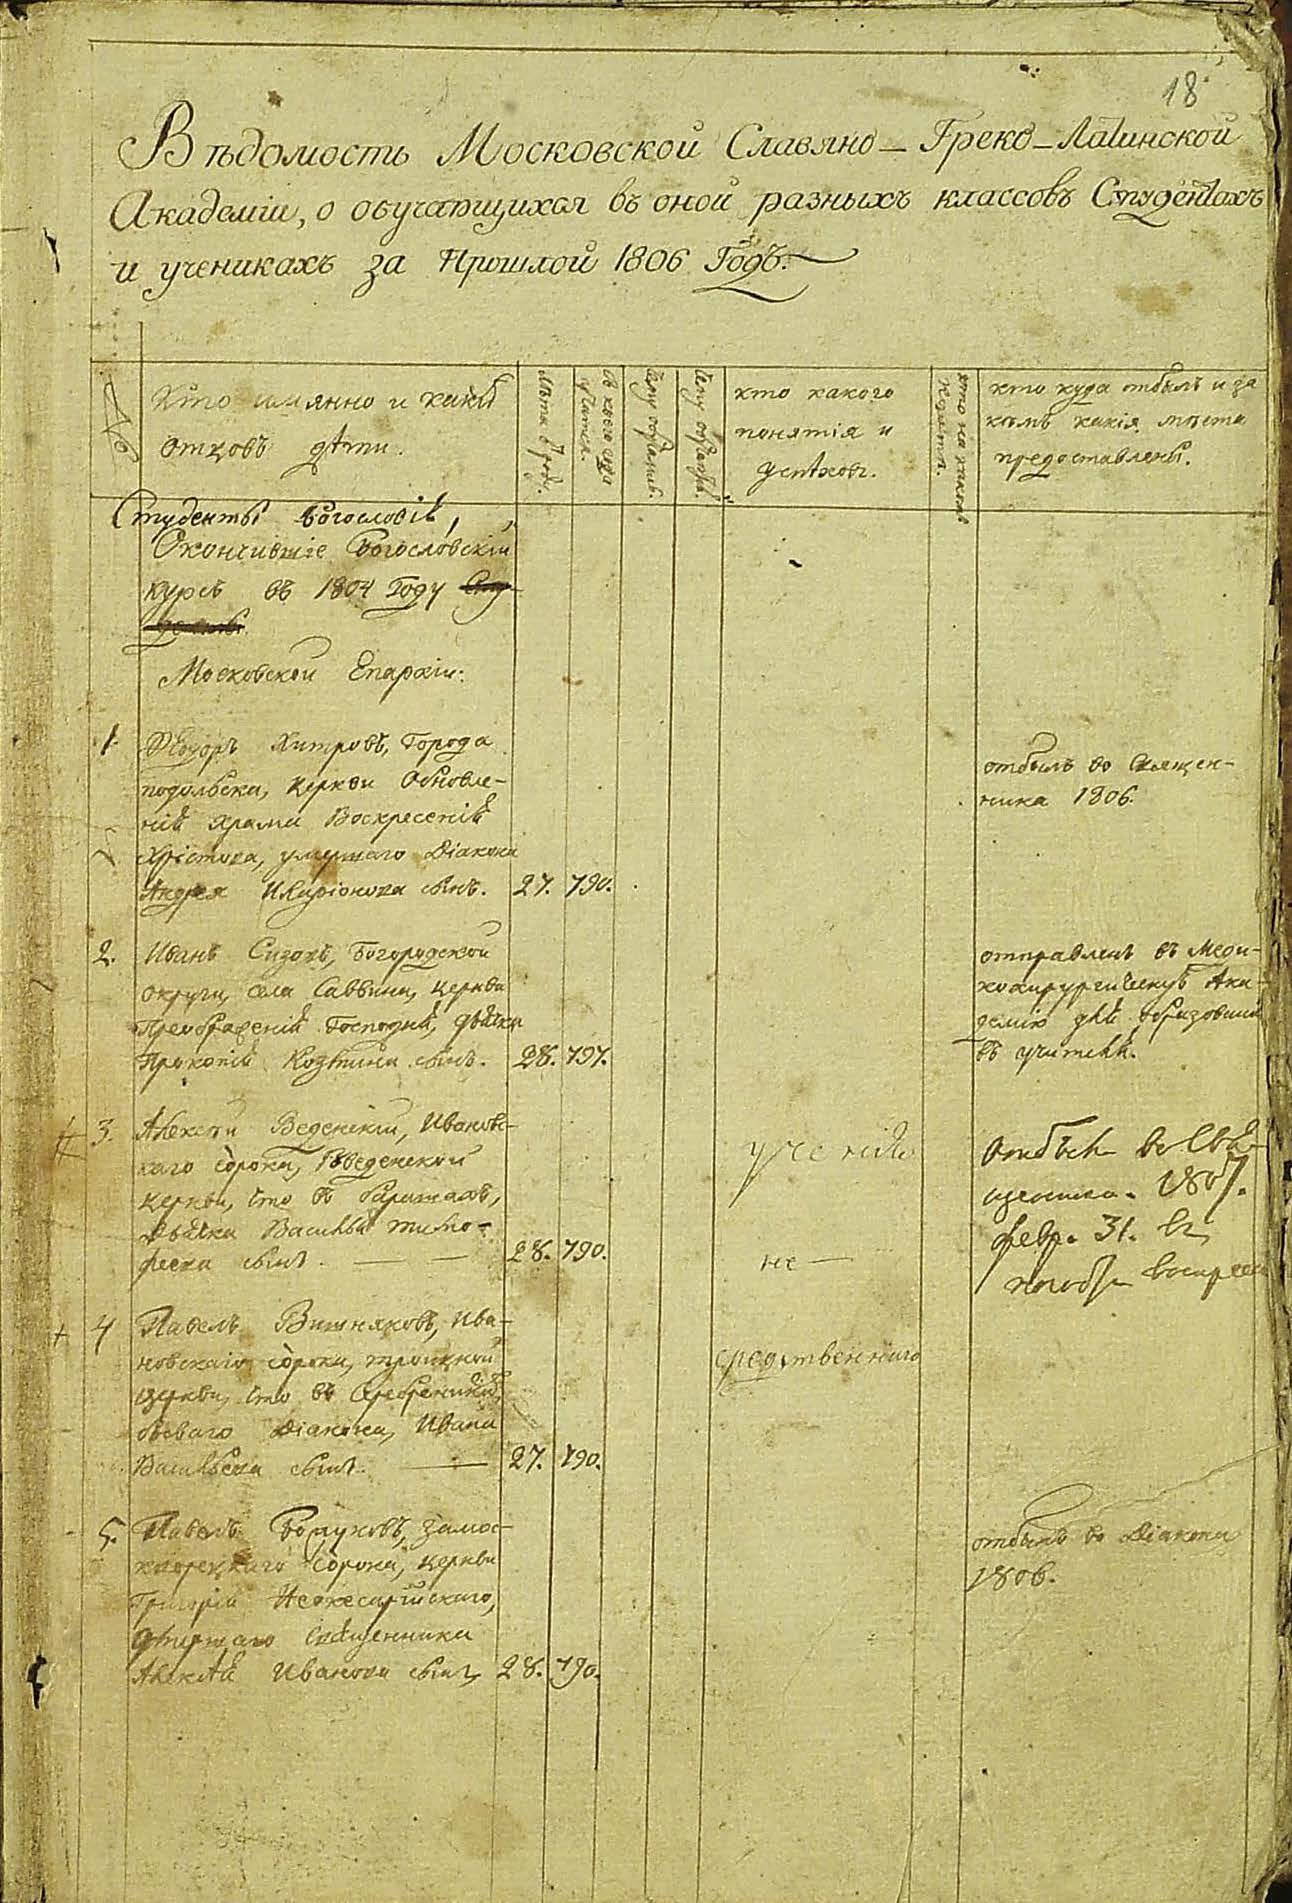 18
Вѣдомость Московской Славяно-Греко-Латинской
Академіи, о обучающихся въ оной разныхъ классовъ Студентахъ
и ученикахъ за Прошлой 1806 Годъ.
№
Кто имянно и какихъ
отцовъ дѣти.
кто какого
понятія и
успѣховъ.
кто куда отбылъ и за
кѣмъ какія мѣста
предоставлены.
Студенты Богословіи,
Окончившіе Богословскій
курсъ въ 1804 Году
Московской Епархіи:
1. Ѳеодоръ Хитровъ, Города
подольска, церкви Обновле-
нія храма Воскресенія
Хрістова, умершаго Діакона
Андрея Иларіонова сынъ. 27. 790.
отбылъ во Священ-
ника 1806.
2. Иванъ Сизовъ, Богородской
округи, села Саввина, церкви
Преображенія Господня, дьячка
Прокопія Козмина сынъ. 28. 797.
отправленъ въ Меди-
кохирургическую Ака-
демію для образованія
въ учителя.
3. Алексѣй Веденскій, Ивановс-
каго сорока, Введенской
церкви, что в барашахъ,
дьячка Василья Тимо-
феева сынъ. 28. 790.
ученія
не
Отбылъ во Свя-
щенника. 1807.
февр. 31. въ
4 Павелъ Вишняковъ, Ива-
новскаго сорока, троицкой
церкви, что въ Серебреникахъ,
бывшаго Діакона, Ивана
Васильева сынъ. 27. 790.
средственнаго
5. Павелъ Замос-
кворецкаго сорока, церкви
Григорія Неокесарійскаго,
умершаго Священника
Алексѣя Иванова сынъ, 28. 790.
отбылъ во Діакона
1806.